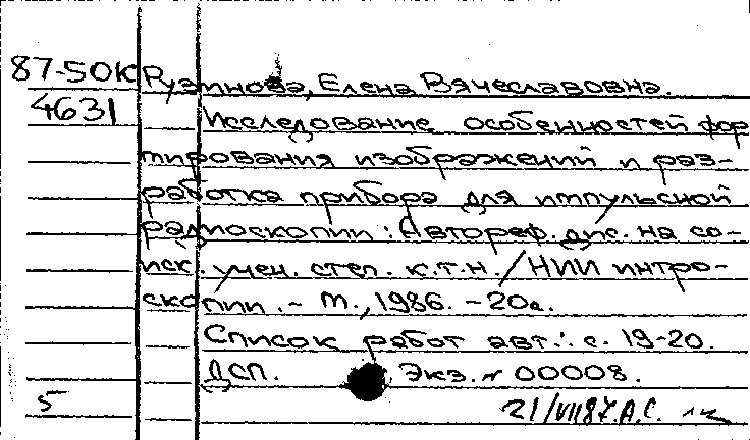 87-50К Рузинова, Елена Вячеславовна.
4631 Исследование особенностей фор
мирования изображений и раз-
работка прибора для импульсной
радиоскопии: Автореф. дис. на со-
иск. учен. степ. к.т.н. / НИИ интро-
скопии. - М., 1986. - 20с.
Список работ авт.: с. 19-20.
ДСП. Экз. № 00008.
5 21/VII87. А.С.